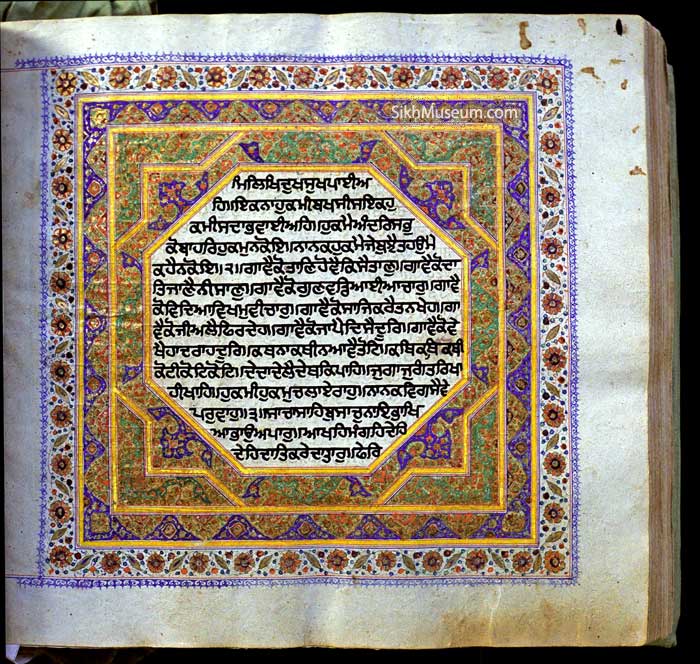 SikhMuseum.com
ਮਿਲਿਖਿਦੁਖਸੁਖਪਾਈਅ
ਹਿ॥ਇਕਨਾਹੁਕਮੀਬਖਸੀਸਇਕਿਹੁ
ਕਮੀਸਦਾਭਵਾਈਅਹਿ॥ਹੁਕਮੈਅੰਦਰਿਸਭੁ
ਕੋਬਾਹਰਿਹੁਕਮਨਕੋਇ॥ਨਾਨਕਹੁਕਮੈਜੇਬੁਝੈਤਹਉਮੈ
ਕਹੈਨਕੋਇ॥੨॥ਗਾਵੈਕੋਤਾਣੁਹੋਵੈਕਿਸੈਤਾਣੁ॥ਗਾਵੈਕੋਦਾ
ਤਿਜਾਣੈਨੀਸਾਣੁ॥ਗਾਵੈਕੋਗੁਣਵਡਿਆਈਆਚਾਰੁ॥ਗਾਵੈ
ਕੋਵਿਦਿਆਵਿਖਮੁਵੀਚਾਰੁ॥ਗਾਵੈਕੋਸਾਜਿਕਰੈਤਨਖੇਹ॥ਗਾ
ਵੈਕੋਜੀਅਲੈਫਿਰਦੇਹ॥ਗਾਵੈਕੋਜਾਪੈਦਿਸੈਦੂਰਿ॥ਗਾਵੈਕੋਵੇ
ਖੈਹਾਦਰਾਹਦੂਰਿ॥ਕਥਨਾਕਥੀਨਆਵੈਤੋਟਿ॥ਕਥਿਕਥਿਕਥੀ
ਕੋਟੀਕੋਟਿਕੋਟਿ॥ਦੇਦਾਦੇਲੈਦੇਥਕਿਪਾਹਿ॥ਜੁਗਾਜੁਗੰਤਰਿਖਾ
ਹੀਖਾਹਿ॥ਹੁਕਮੀਹੁਕਮੁਚਲਾਏਰਾਹੁ॥ਨਾਨਕਵਿਗਸੈਵੇ
ਪਰਵਾਹੁ॥੩॥ਸਾਚਾਸਾਹਿਬੁਸਾਚੁਨਾਇਭਾਖਿ
ਆਭਾਉਅਪਾਰੁ॥ਆਖਹਿਮੰਗਹਿਦੇਹਿ
ਦੇਹਿਦਾਤਿਕਰੇਦਾਤਾਰੁ॥ਫੇਰਿ